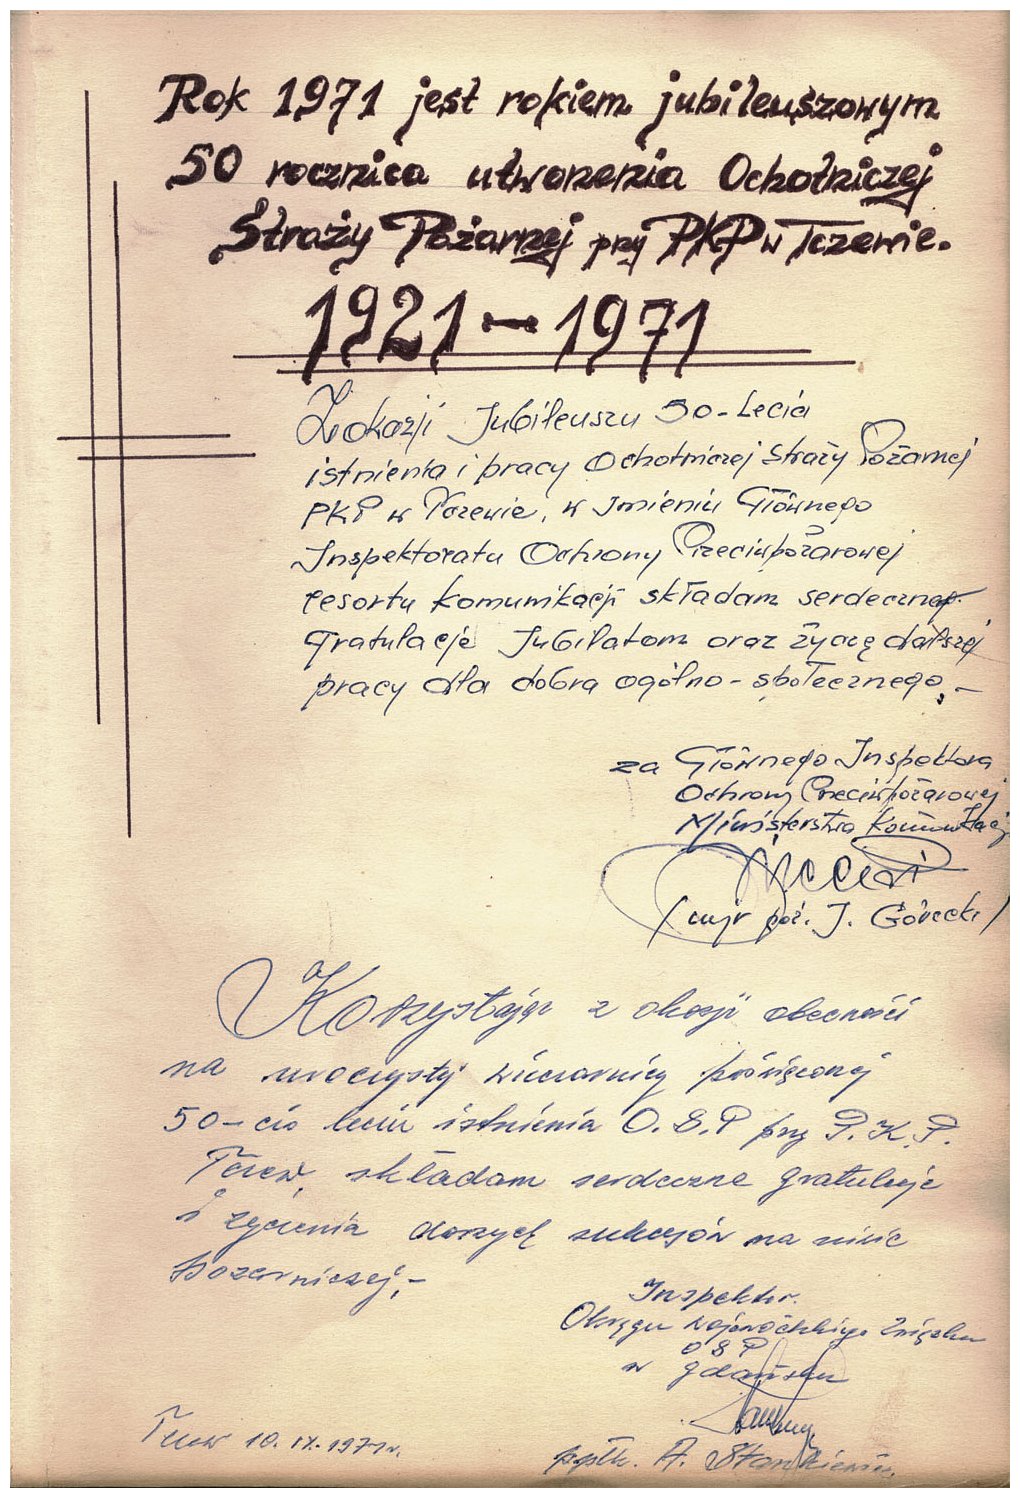 Rok 1971 jest rokiem jubileuszowym
50 rocznica utworzenia Ochotniczej
Straży Pożarnej przy PKP w Tczewie.
1921 - 1971
Z okazji Jubileuszu 50-Lecia
istnienia i pracy Ochotniczej Straży Pożarnej
PKP w Tczewie, w Imieniu Głównego
Inspektoratu Ochrony Przeciwpożarowej
resortu komunikacji składam serdeczne
Gratulacje Jubilatom oraz życzę dalszej
pracy dla dobra ogólno-społecznego,-
za Głównego Inspektora
Ochrony Przeciwpożarowej
Ministerstwa Komunikacji
(mjr poż. J. Górecki)
Korzystając z okazji obecności
na uroczystej wieczornicy poświęconej
50-cio leciu istnienia O.S.P przy P.K.P.
Tczew, składam serdeczne gratulacje
i życzenia dalszych sukcesów na niwie
pożarniczej,-
Inspektor
Okręgu Wojewódzkiego Związku
OSP
w Gdańsku
Tczew 10.IX.1971r.
ppłk. A. Stankiewicz